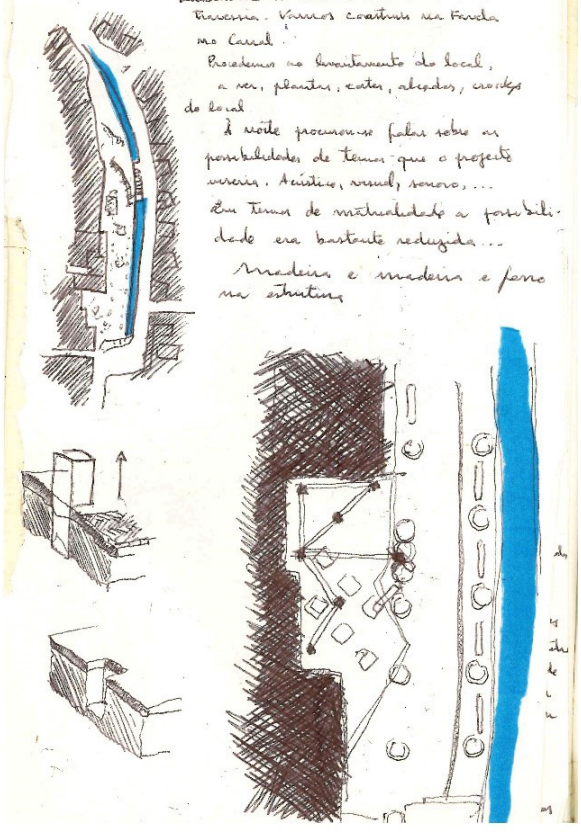 travessia. Vamos construir na Farola
no Canal.
Procedemos ao levantamento do local,
a ver, plantas, cortes, alçados, croquis
do local
À noite procurou-se falar sobre as
possibilidades de temas que o projecto
viveria. Acústico, visual, sonoro, ...
Em termos de materialidade a possibili-
dade era bastante reduzida...
Madeira e madeira e ferro
na estrutura